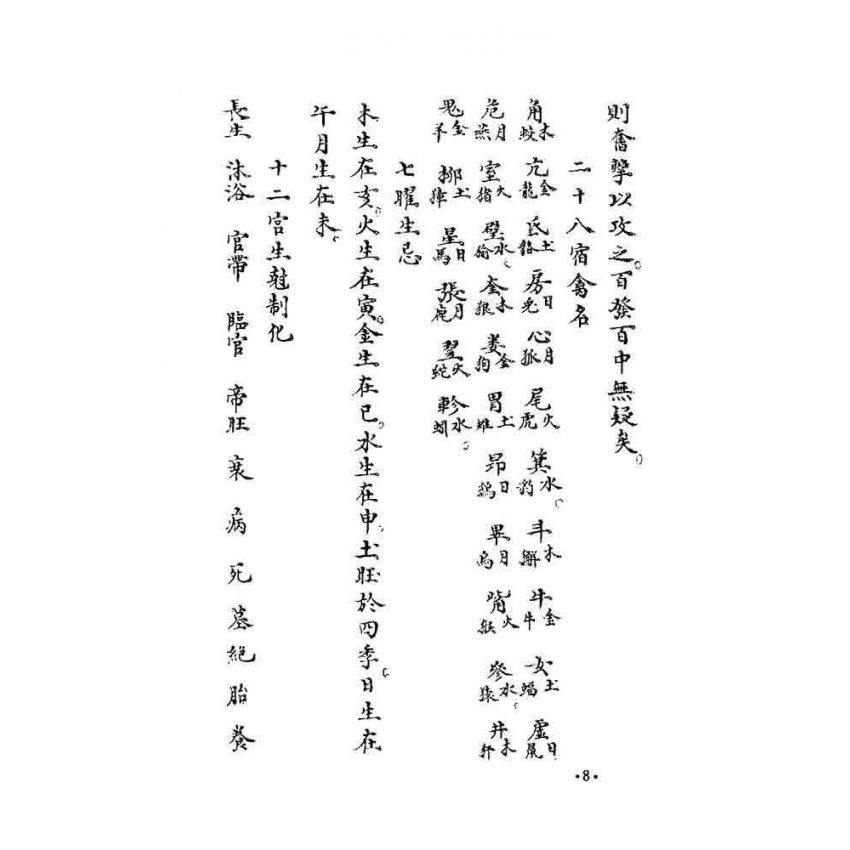 則奮擊以攻之。百發百中無疑矣。
二十八宿禽名
角木蛟 亢金龍 氐土貉 房日兎 心月狐 尾火虎 箕水豹。 斗木獬 牛金牛 女土蝠 虛日鼠
危月燕 室火猪 壁水㺄。 奎木狼 婁金狗 胃土雉 昴日鷄 畢月烏 觜火猴 參水猿。 井木犴
鬼金羊 柳土獐 星日馬 張月鹿 翌火蛇 軫水蚓。
七曜生忌
木生在亥。火生在寅。金生在巳。水生在申。土旺於四季。日生在
午月生在未。
十二宮生尅制化
長生 沐浴 官帶 臨官 帝旺 衰 病 死 墓 絕 胎 養
•8•